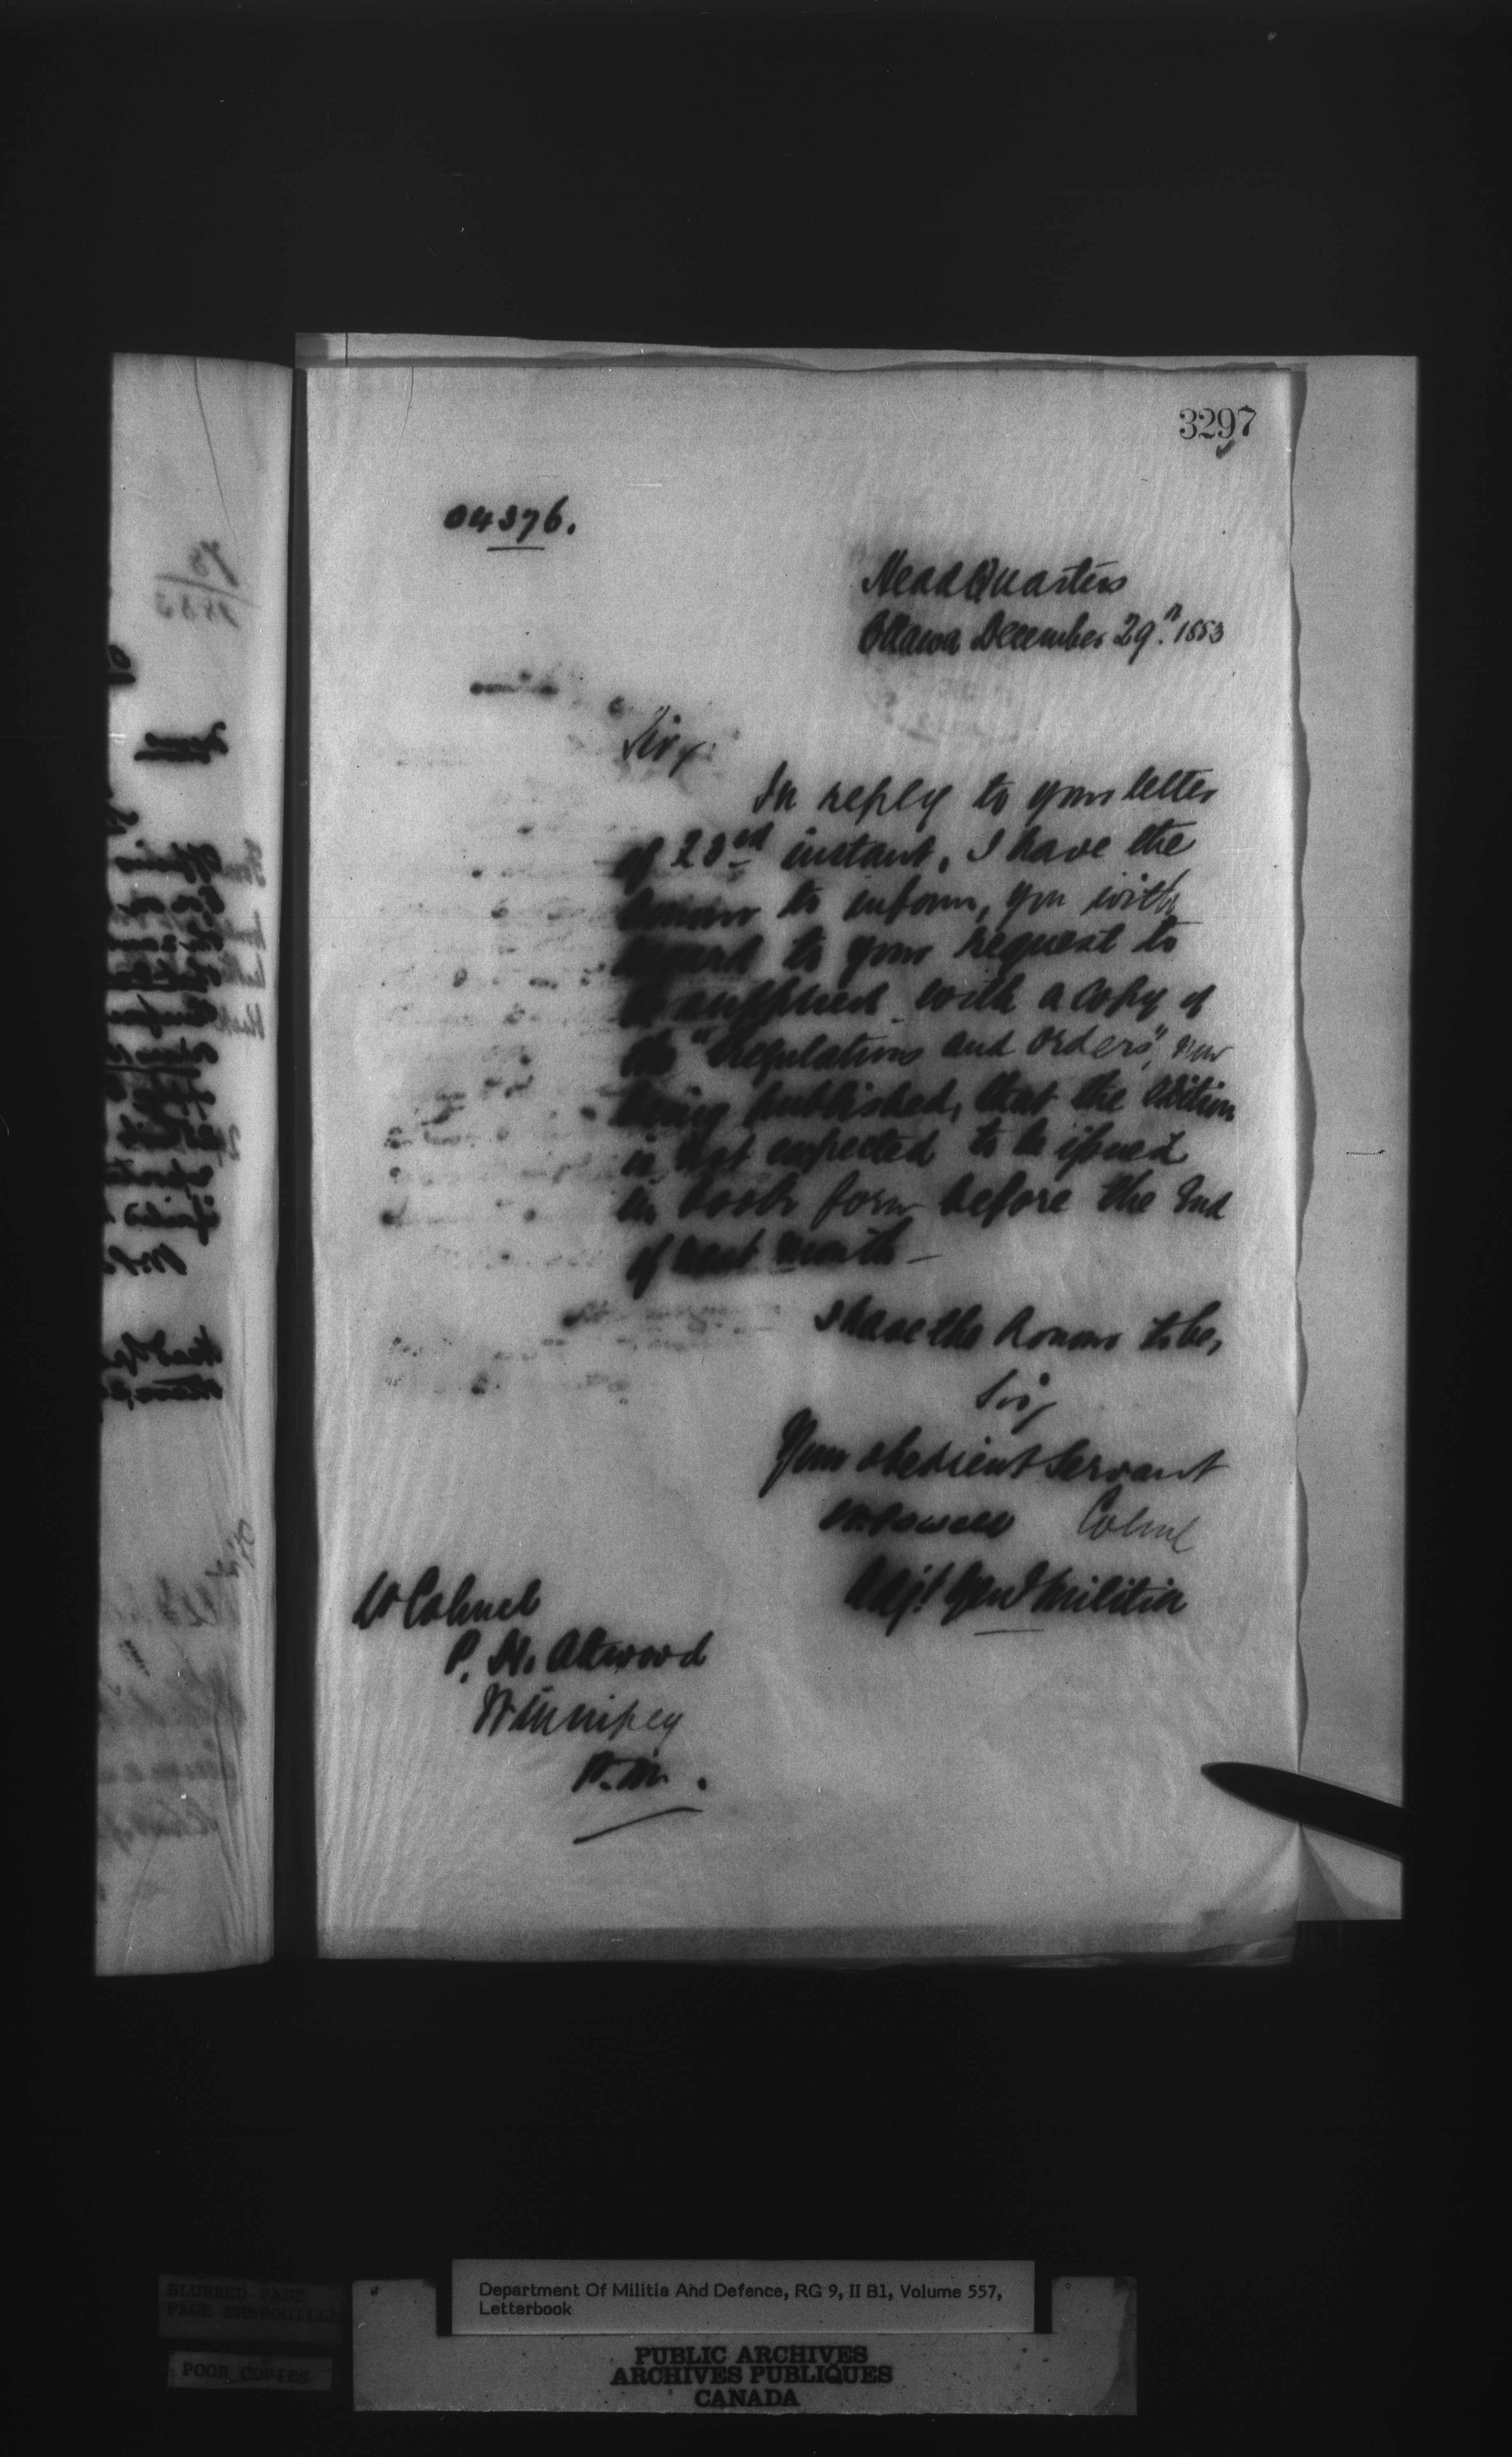 3297
04376.
Head Quarters
Ottawa December 29th. 1883
Sir,
In reply to your letter
of 23rd instant, I have the
honour to inform, you with
regard to your request to
be supplied with a copy of
the "Regulations and Orders", now
being published, that the Edition
is not expected to be issued
in book form before the End
of next month —
I have the honour to be,
Sir,
Your obedient Servant
W Powell Colonel
Adjt Genl Militia
Lt Colonel
P. H. Attwood
Winnipeg
BLURRED PAGE
PAGE EMBROUILLE
POOR COPIES
Department Of Militia Ahd Defence, RG 9, II B1, Volume 557,
Letterbook
PUBLIC ARCHIVES
ARCHIVES PUBLIQUES
CANADA